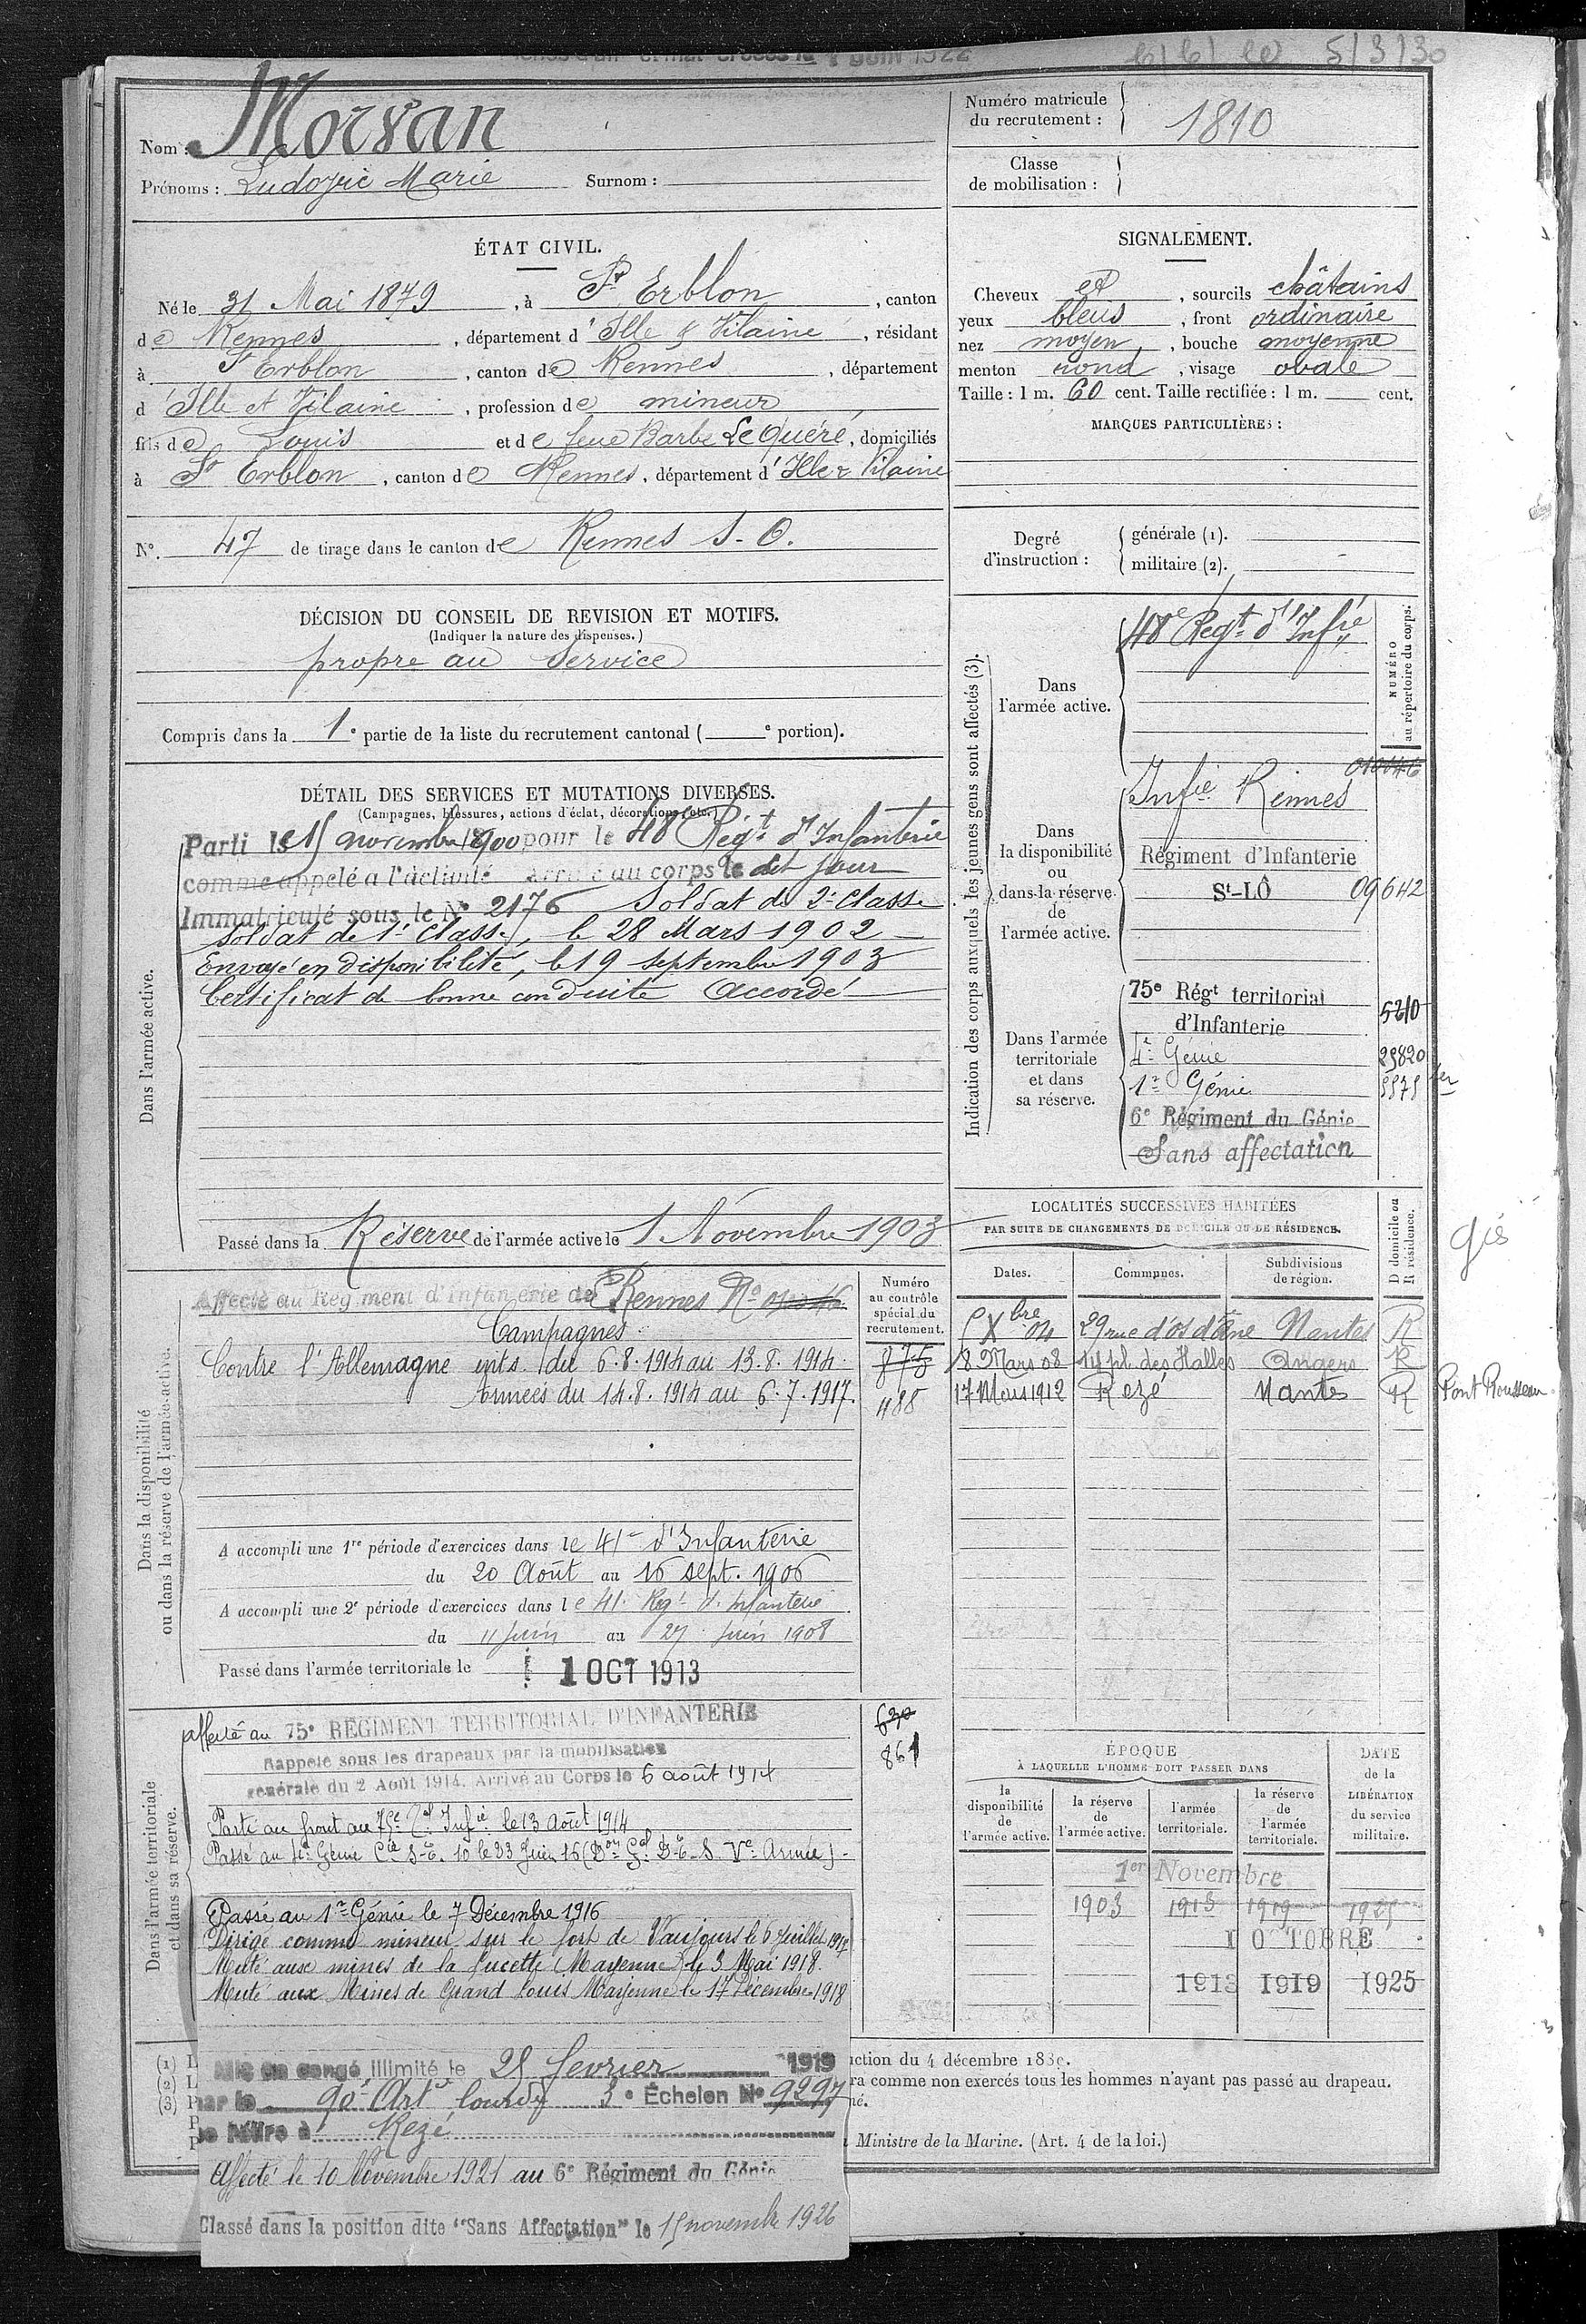 5/3/30
Nom : Morvan
Prénoms : Ludovic Marie Surnom :
Numéro matricule du recrutement : 1810
Classe de mobilisation :
ÉTAT CIVIL.
Né le 31 Mai 1879, à St Erblon, canton
de Rennes, département d'Ille & Vilaine, résidant
à St Erblon, canton de Rennes, département
d'Ille et Vilaine, profession de mineur
fils de Louis et de feue Barbe Le Quéré, domiciliés
à St Erblon, canton de Rennes, département d'Ille & Vilaine
N°. 47 de tirage dans le canton de Rennes S. O.
SIGNALEMENT.
Cheveux et, sourcils châtains
yeux bleus, front ordinaire
nez moyen, bouche moyenne
menton rond, visage ovale
Taille : 1 m. 60 cent. Taille rectifiée : 1 m. cent.
MARQUES PARTICULIÈRES :
Degré d'instruction : générale (1).
militaire (2).
DÉCISION DU CONSEIL DE REVISION ET MOTIFS.
(Indiquer la nature des dispenses.)
propre au Service
Compris dans la 1e partie de la liste du recrutement cantonal ( e portion).
DÉTAIL DES SERVICES ET MUTATIONS DIVERSES.
(Campagnes, blessures, actions d'éclat, décorations, etc.)
Dans l'armée active.
Parti le 15 novembre 1900 pour le 48e Régt d'Infanterie
comme appelé à l'activité Arrivé au corps le dit jour
Immatriculé sous le N° 2176 Soldat de 2e Classe
Soldat de 1e Classe, le 28 Mars 1902
Envoyé en disponibilité, le 19 septembre 1903
Certificat de bonne conduite Accordé
Passé dans la Réserve de l'armée active le 1 Novembre 1903
Indication des corps auxquels les jeunes gens sont affectés (3).
NUMÉRO au répertoire du corps.
Dans l'armée active.
48e Régt d'Infie
Dans la disponibilité ou dans la réserve de l'armée active.
Infie Rennes
Régiment d'Infanterie
St-LÔ 09642
Dans l'armée territoriale et dans sa réserve.
75e Régt territorial
d'Infanterie 5210
4e Génie 25820
1er Génie
6e Régiment du Génie
Sans affectation
Dans la disponibilité ou dans la réserve de l'armée active.
Affecté au Régiment d'Infanterie de Rennes No
Numéro au contrôle spécial du recrutement.
Campagnes
Contre l'Allemagne intr. du 6.8.1914 au 13.8.1914. 875
Armées du 14.8.1914 au 6.7.1917. 488
A accompli une 1re période d'exercices dans le 41e d'Infanterie
du 20 Août au 16 sept. 1906
A accompli une 2e période d'exercices dans le 41e Régt d'Infanterie
du 11 Juin au 27 Juin 1908
Passé dans l'armée territoriale le 1 OCT 1913
LOCALITÉS SUCCESSIVES HABITÉES
PAR SUITE DE CHANGEMENTS DE DOMICILE OU DE RÉSIDENCE.
D domicile ou R résidence.
Dates. Communes. Subdivisions de région.
5 Xbre 04 29 rue d'Os d'Ène Nantes R
8 Mars 08 14 pl. des Halles Angers R
17 Mars 1912 Rezé Nantes R Pont Rousseau
Dans l'armée territoriale et dans sa réserve.
affecté au 75e RÉGIMENT TERRITORIAL D'INFANTERIE 630
Rappelé sous les drapeaux par la mobilisation 861
générale du 2 Août 1914. Arrivé au Corps le 6 août 1914
Parti au front au 75e Tal Infie le 13 Août 1914
Passé au 4e Génie Cie S-E. 10 le 23 Juin 16 (Don Gal D-E-S Ve Armée).
Passé au 1er Génie le 7 Décembre 1916
Dirigé comme mineur sur le fort de Vaujours le 6 Juillet 1917
Muté aux mines de la Lucette (Mayenne) le 3 Mai 1918.
Muté aux Mines de Grand Louis Mayenne le 17 Décembre 1918
Mis en congé illimité le 25 fevrier 1919
par le 90e Arte lourde 3e Échelon No 9297
se retire à Rezé
Affecté le 10 Novembre 1921 au 6e Régiment du Génie
Classé dans la position dite "Sans Affectation" le 15 novembre 1926
ÉPOQUE
À LAQUELLE L'HOMME DOIT PASSER DANS
DATE de la LIBÉRATION du service militaire.
la disponibilité de l'armée active. la réserve de l'armée active. l'armée territoriale. la réserve de l'armée territoriale.
1er Novembre
1903 1913 1919 1925
1 OCTOBRE
1913 1919 1925
(1) L
(2) L
(3) P
ction du 4 décembre 1889.
ra comme non exercés tous les hommes n'ayant pas passé au drapeau.
né.
Ministre de la Marine. (Art. 4 de la loi.)